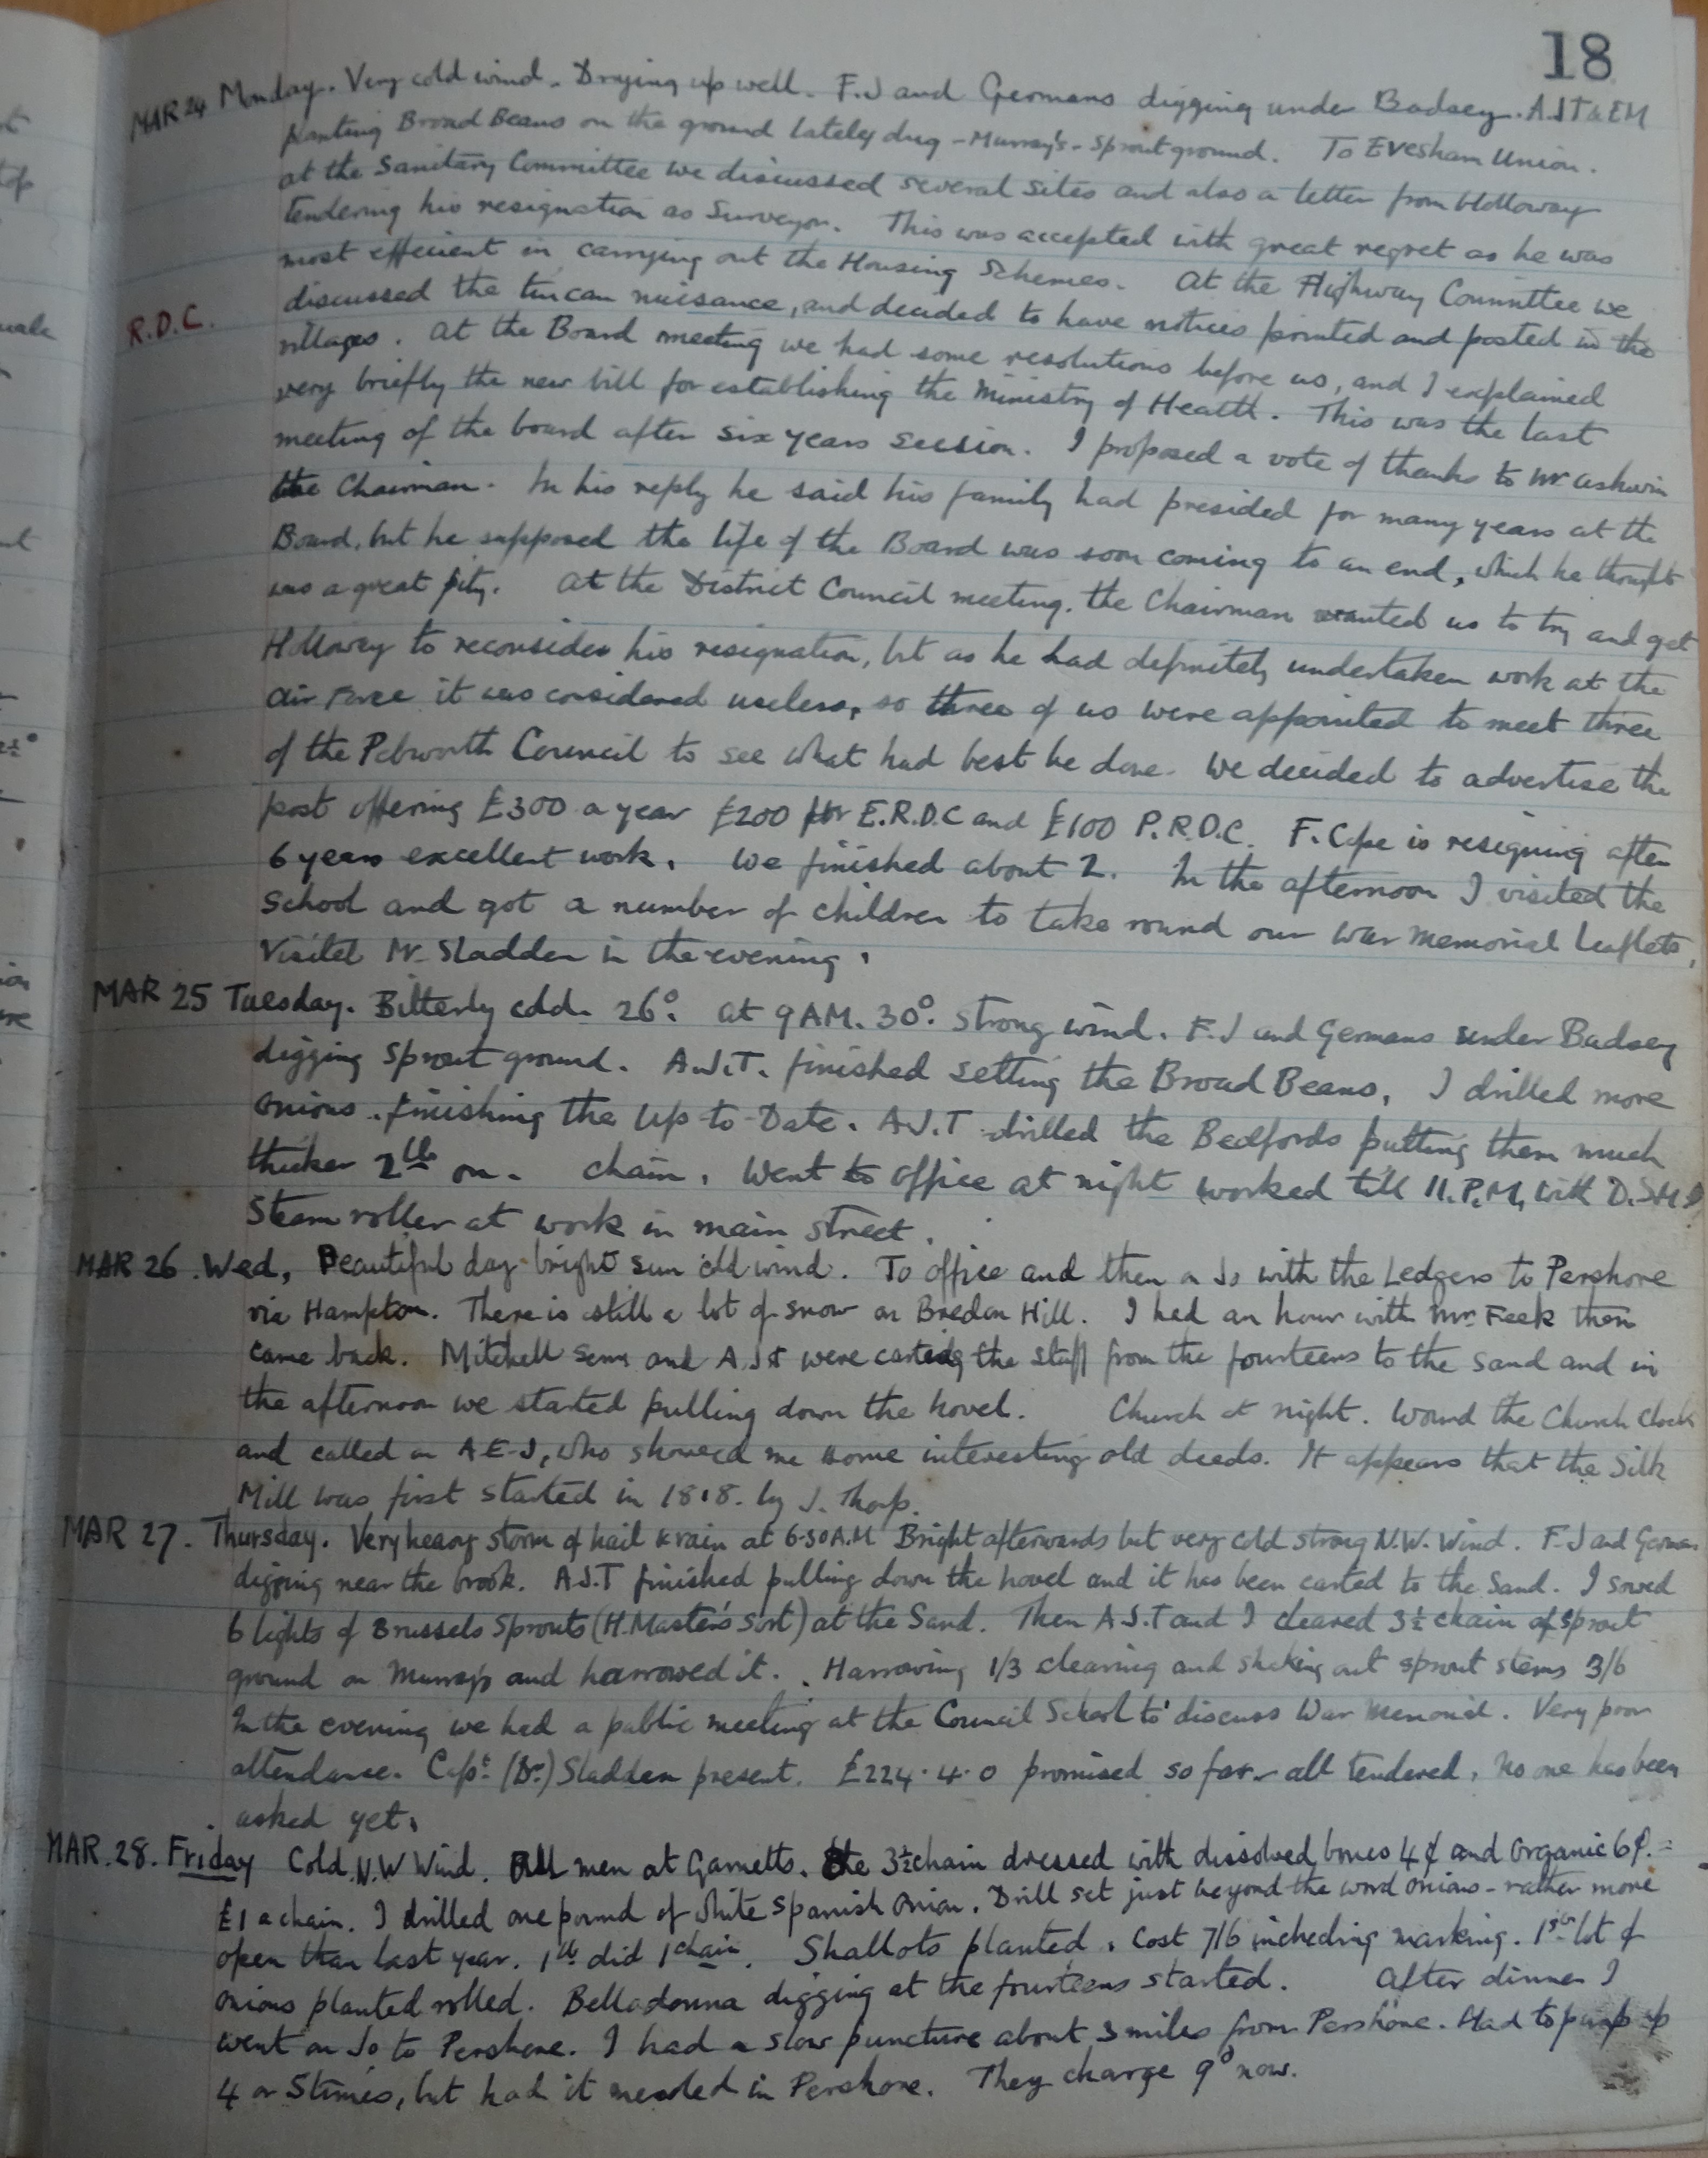 18
MAR 24 Monday. Very cold wind. Drying up well. F.J and Germans digging under Badsey. A.J.T & EM
planting Broad Beans on the ground lately dug - Murray's - Sprout ground. To Evesham Union.
at the Sanitary Committee we discussed several sites and also a letter from Holloway
tendering his resignation as Surveyor. This was accepted with great regret as he was
most efficient in carrying out the Housing Schemes. At the Highway Committee we
R.D.C. discussed the tin can nuisance, and decided to have notices printed and posted in the
villages. At the Board meeting we had some resolutions before us, and I explained
very briefly the new bill for establishing the Ministry of Health. This was the last
meeting of the board after six years session. I proposed a vote of thanks to Mr Ashwin
the Chairman. In his reply he said his family had presided for many years at the
Board, but he supposed the life of the Board was soon coming to an end, which he thought
was a great pity. At the District Council meeting. the Chairman wanted us to try and get
Holloway to reconsider his resignation, but as he had definitely undertaken work at the
Air Force it was considered useless, so three of us were appointed to meet three
of the Pebworth Council to see what had best be done. We decided to advertise the
post offering £300 a year £200 for E.R.D.C and £100 P.R.D.C. F. Cope is resigning after
6 years excellent work. We finished about 2. In the afternoon I visited the
School and got a number of children to take round our War Memorial Leaflets,
Visited Mr. Sladden in the evening.
MAR 25 Tuesday. Bitterly cold. 26°. at 9 AM. 30°. strong wind. F.J and Germans under Badsey
digging sprout ground. A.J.T. finished setting the Broad Beans, I drilled more
onions. finishing the Up-to-Date. A.J.T drilled the Bedfords putting them much
thicker 2 lb on. chain. Went to office at night worked till 11. P.M, with D.
Steam roller at work in main street.
MAR 26. Wed, Beautiful day bright sun cold wind. To office and then on Jo with the Ledgers to Pershore
via Hampton. There is still a lot of snow on Bredon Hill. I had an hour with Mr. Feek then
came back. Mitchell Senr and A.J.T were carting the stuff from the fourteens to the sand and in
the afternoon we started pulling down the hovel. Church at night. Wound the Church Clock
and called on A E-J, who showed me some interesting old deeds. It appears that the Silk
Mill was first started in 1818. by J. Thorp.
MAR 27. Thursday. Very heavy storm of hail & rain at 6-30 A.M Bright afterwards but very cold strong N.W. Wind. F-J and German
digging near the brook. A J.T finished pulling down the hovel and it has been carted to the Sand. I sowed
6 lights of Brussels Sprouts (H. Masters sort) at the Sand. Then A J.T and I cleared 3½ chain of sprout
ground on Murrays and harrowed it. Harrowing 1/3 clearing and shaking out sprout stems 3/6
In the evening we had a public meeting at the Council School to discuss War Memorial. Very poor
attendance. Capt. (Dr.) Sladden present. £224.4.0 promised so far - all tendered, no one has been
asked yet.
MAR. 28. Friday Cold. N.W Wind. All men at Garnetts. The 3½ chain dressed with dissolved bones 4 ¢ and Organic 6 ¢. =
£1 a chain. I drilled one pound of White Spanish Onion. Drill set just beyond the word onions - rather more
open than last year. 1 lb did 1 chain. Shallots planted. Cost 7/6 including marking. 1st lot of
onions planted rolled. Belladonna digging at the fourteens started. After dinner I
went on Jo to Pershore. I had a slow puncture about 3 miles from Pershore. Had to pump up
4 or 5 times, but had it mended in Pershore. They charge 9d now.